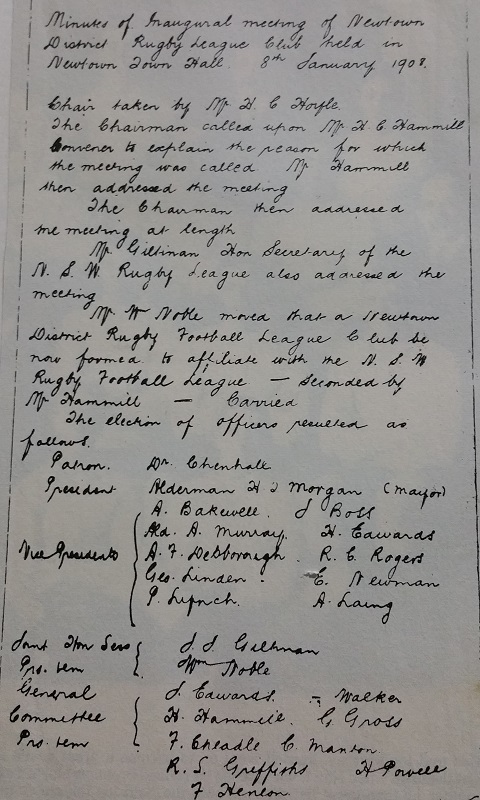 Minutes of Inaugural meeting of Newtown
District Rugby League Club held in
Newtown Town Hall. 8th January 1908.
Chair taken by Mr H. C Hoyle.
The Chairman called upon Mr H. C. Hammill
Convener to explain the reason for which
the meeting was called Mr Hammill
then addressed the meeting
The Chairman then addressed
the meeting at length
Mr. Giltinan Hon Secretary of the
N. S. W. Rugby League also addressed the
meeting
Mr Wm Noble moved that a Newtown
District Rugby Football League Club be
now formed to affiliate with the N. S. W
Rugby Football League — Seconded by
Mr Hammill — Carried
The election of officers resulted as
follows.
Patron. Dr. Chenhall
President Alderman H J Morgan (mayor)
A. Bakewell. J Boss
Ald. A. Murray. H. Edwards
Vice Presidents A. F. Desborough. R. C. Rogers
Geo. Linden. E. Newman
P. Lynch. A. Laing
Joint Hon Secs J. J. Giltinan
Pro. tem Wm Noble
General J. Edwards. — Walker
Committee H. Hammill. G Gross
Pro. tem F. Cheadle C. Manton.
R. S. Griffiths H Powell
F Henlon.